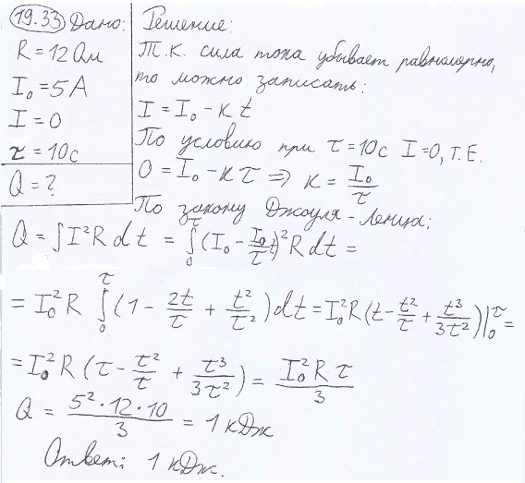 19.33 Дано:
R = 12 Ом
I₀ = 5 А
I = 0
τ = 10 с
Q = ?
Решение:
Т.к. сила тока убывает равномерно,
то можно записать:
I = I₀ - кt
По условию при τ = 10с I = 0, т.е.
0 = I₀ - кτ ⇒ к = I₀/τ
По закону Джоуля-Ленца:
Q = ∫I²R dt = ∫₀^τ (I₀ - I₀/τ t)² R dt =
= I₀² R ∫₀^τ (1 - 2t/τ + t²/τ²) dt = I₀² R (t - t²/τ + t³/3τ²)|₀^τ =
= I₀² R (τ - τ²/τ + τ³/3τ²) = I₀² R τ/3
Q = 5²·12·10/3 = 1 кДж
Ответ: 1 кДж.